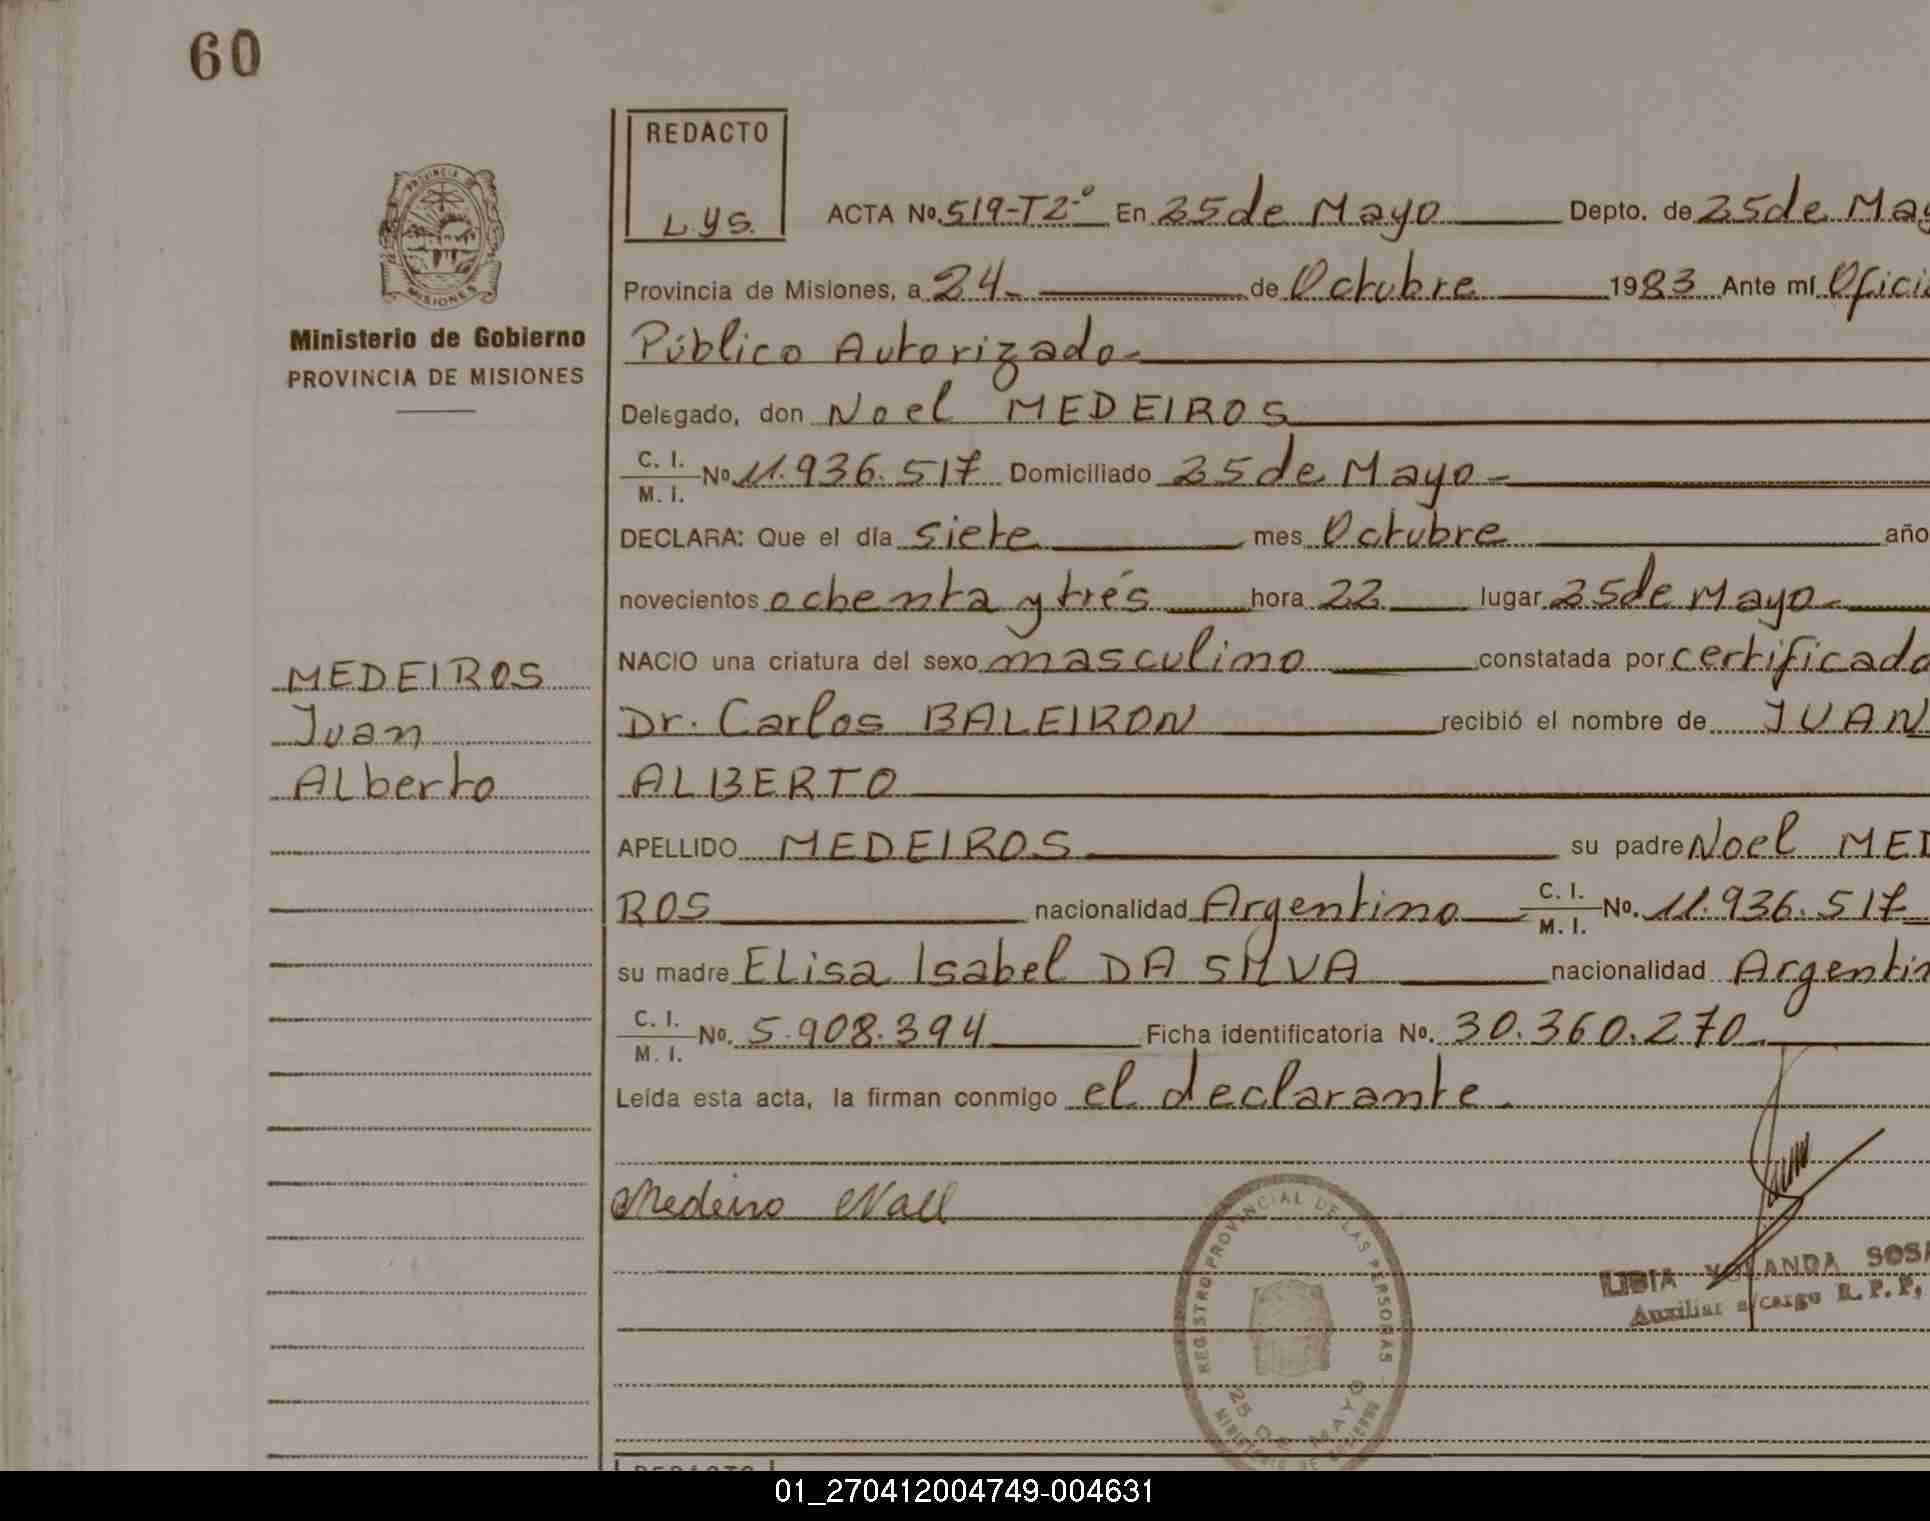 60
REDACTO
L.yS.
PROVINCIA DE
MISIONES
Ministerio de Gobierno
PROVINCIA DE MISIONES
ACTA No. 519-T2-º En 25 de Mayo Depto. de 25 de May
Provincia de Misiones, a 24- de Octubre 1983 Ante mí Oficia
Público Autorizado-
Delegado, don Noel MEDEIROS
C. I.
M. I. No. 11.936.517 Domiciliado 25 de Mayo-
DECLARA: Que el día siete mes Octubre año
novecientos ochenta y trés hora 22 lugar 25 de Mayo-
NACIO una criatura del sexo masculino constatada por certificado
Dr. Carlos BALEIRON recibió el nombre de JUAN
ALBERTO
MEDEIROS
Juan
Alberto
APELLIDO MEDEIROS su padre Noel MEI
ROS nacionalidad Argentino C. I.
M. I. No. 11.936.517
su madre ELisa Isabel DA SILVA nacionalidad Argentin
C. I.
M. I. No. 5.908.394 Ficha identificatoria No. 30.360.270
Leída esta acta, la firman conmigo el declarante.
Medeiro
REGISTRO PROVINCIAL DE LAS PERSONAS
25 DE MAYO
MINISTERIO DE GOBIERNO
LIDIA YOLANDA SOSA
Auxiliar a/cargo R. P. P,
REDACTO
01_270412004749-004631